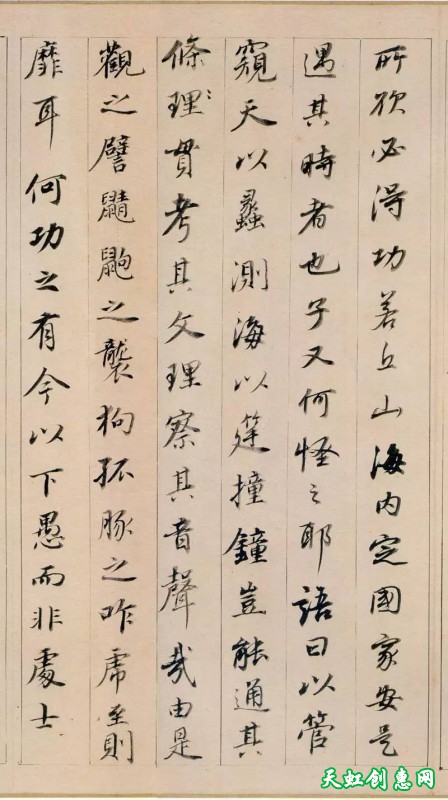 所欲必得功若丘山海内定國家安是
遇其時者也子又何怪之耶語曰以管
窺天以蠡測海以筳撞鐘豈能通其
條理貫考其文理察其音聲哉由是
觀之譬鼱鼩之襲狗孤豚之咋虎至則
靡耳何功之有今以下愚而非處士
天虹创惠网